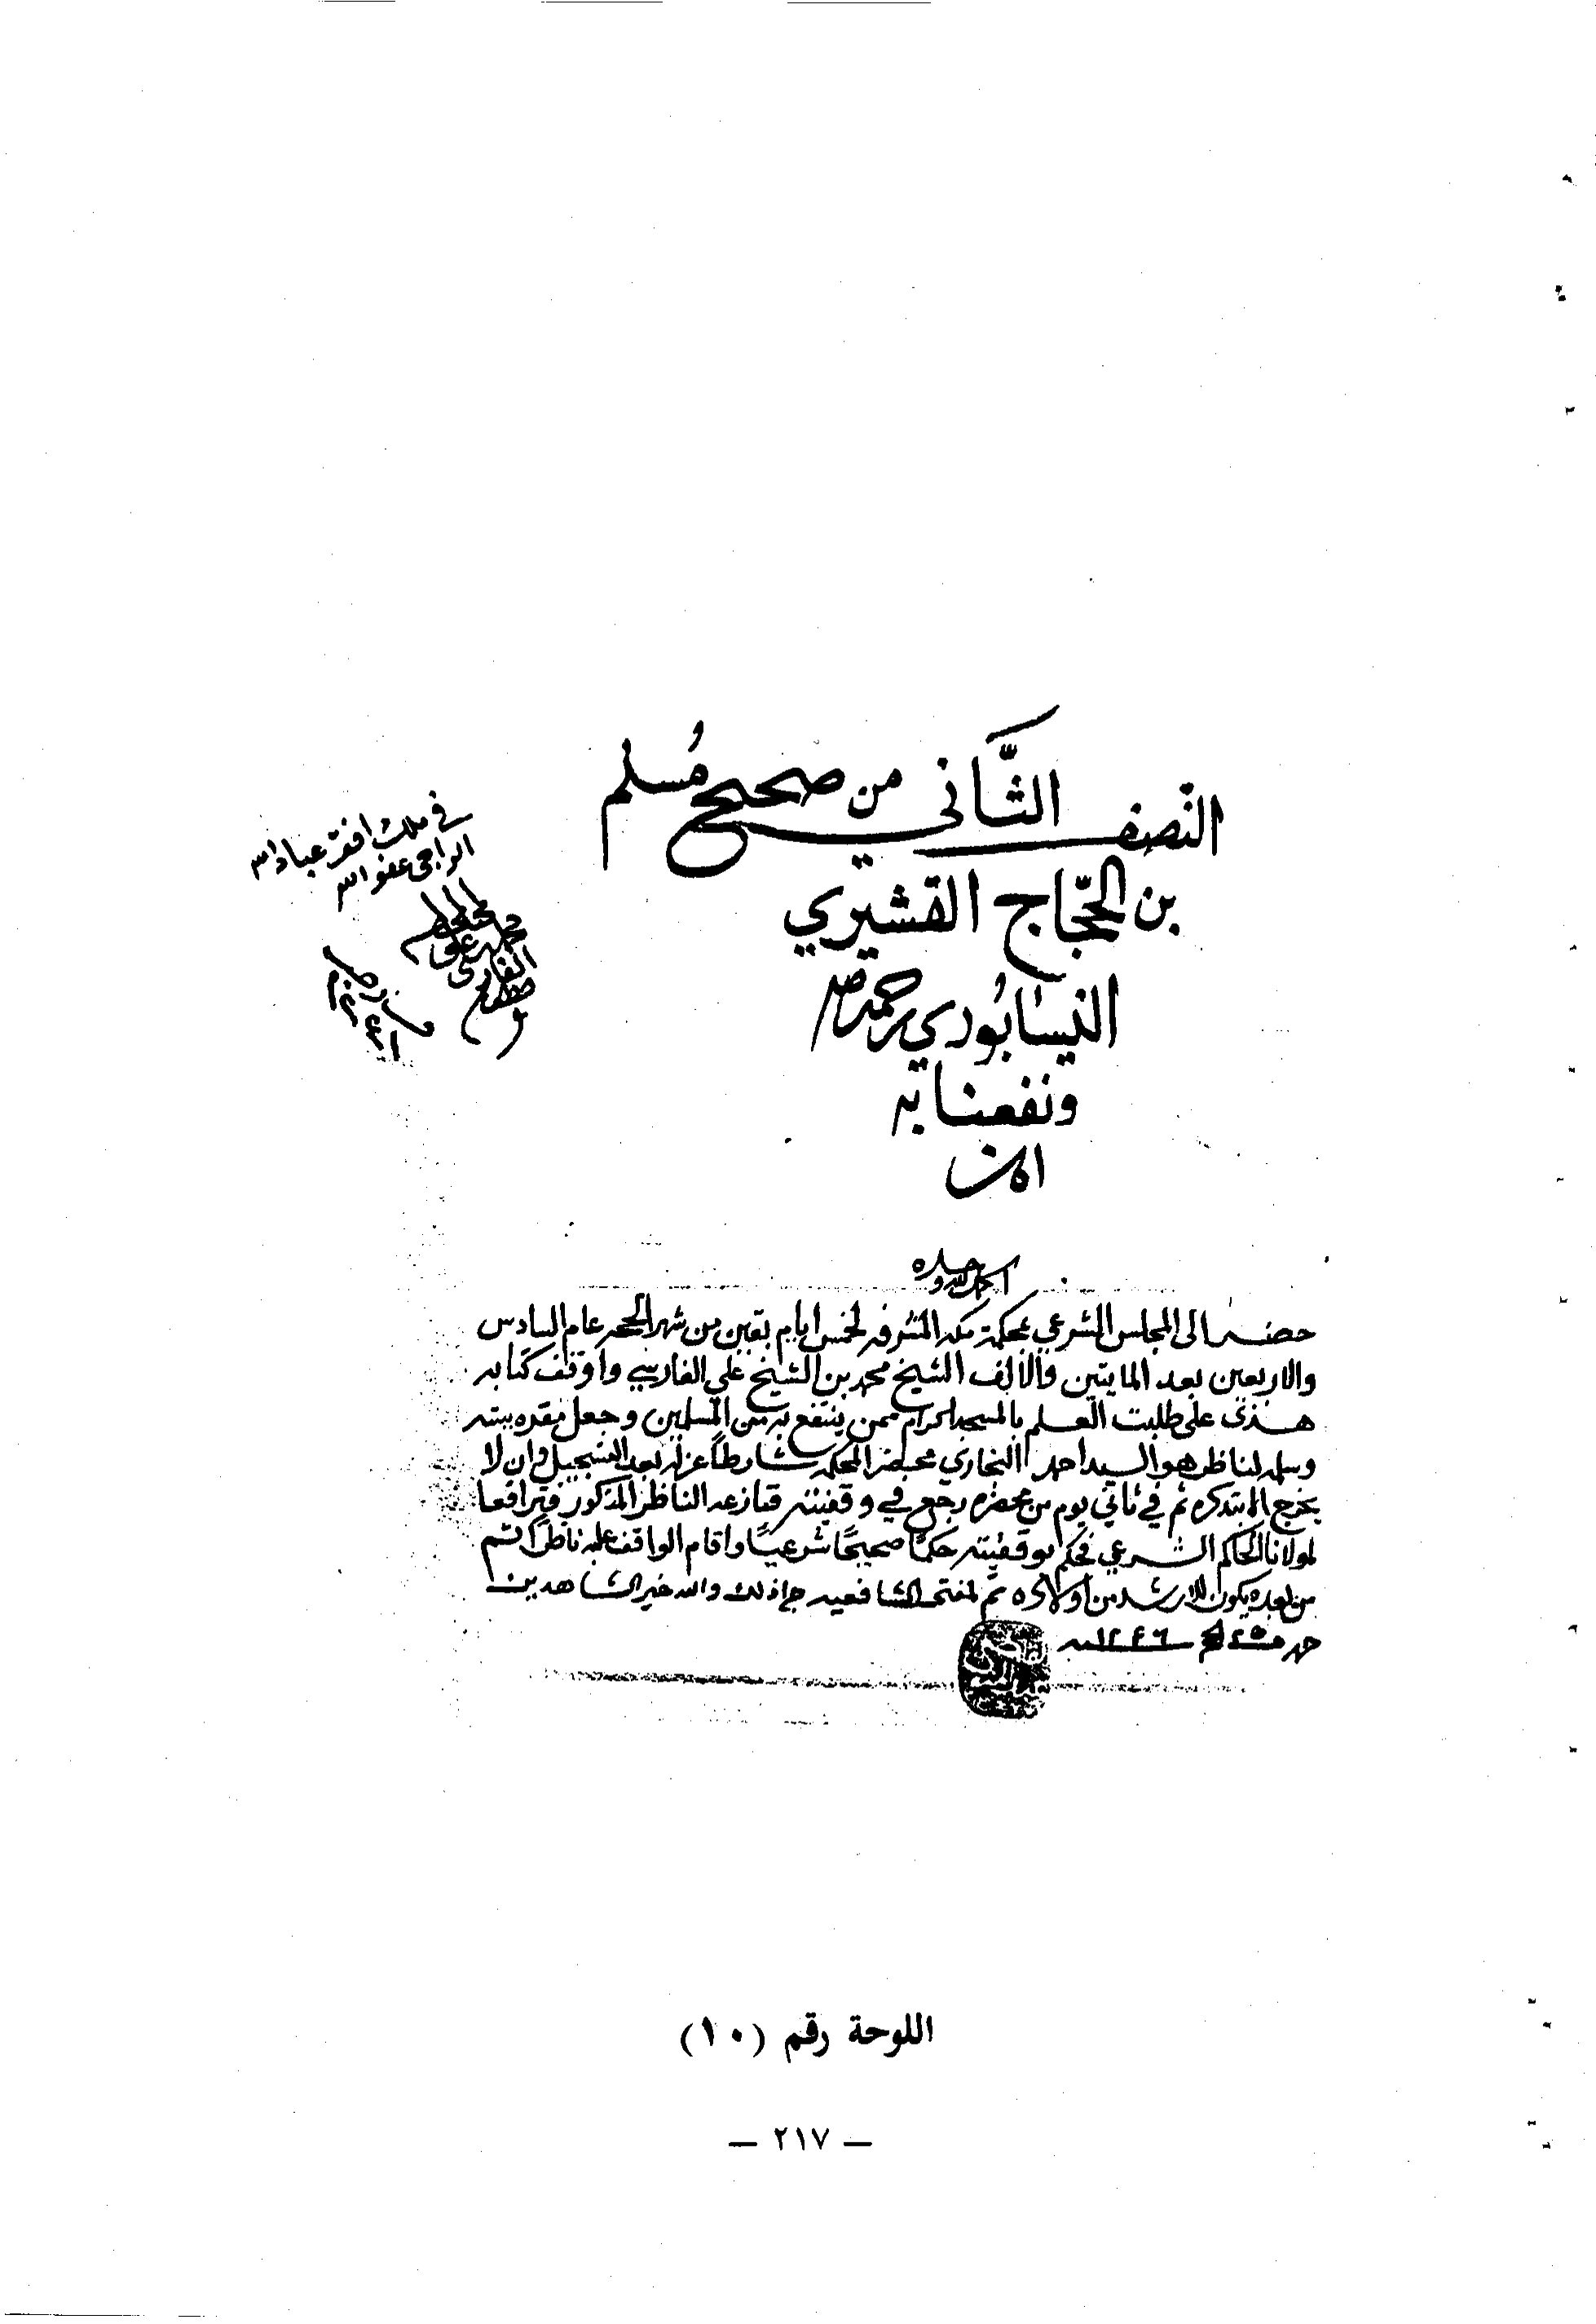 النّصف الثَّاني من صحيح مُسلم
بن الحجّاج القشيري
النيسابُوري رحمه الله
ونفعنا به
امين
في ملك افقر عباد الله
الراجي عفو الله
محمد علي
الفارسي
الحمد لله وحده
حضر الى المجلس الشرعي بمحكمة مكه المشرفه لخمس ايام بقين من شهر الحجه عام السادس
والاربعين بعد المايتين والالف الشيخ محمد بن الشيخ علي الفارسي واوقف كتابه
هذى على طلبت العلم بالمسجد الحرام ممن ينتفع به من المسلمين وجعل مقره بيته
وسلمه لناظر هو السيد احمد البخاري بمحضر المحكمه شارطاً عزله بعد التسجيل وان لا
يخرج الا بتذكره ثم في ثاني يوم من محضره رجع في وقفيته فنازعه الناظر المذكور فترافعا
لمولانا الحاكم الشرعي فحكم بوقفيته حكمًا صحيحًا شرعيًا واقام الواقف عليه ناظرًا ثم
من بعده يكون للارشد من أولاده ثم لمفتي الشافعيه جرا ذلك والله خير الشاهدين
حرر ٢٥ سنة ١٢٤٦
اللوحة رقم (١٠)
— ٢١٧ —